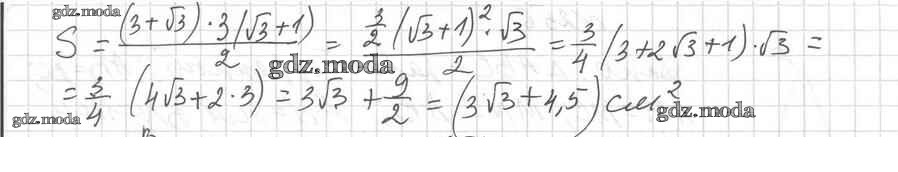 gdz.moda
S = (3+√3)·3(√3+1)/2 = 3/2(√3+1)²·√3/2 = 3/4(3+2√3+1)·√3 =
gdz.moda
= 3/4 (4√3+2·3) = 3√3 + 9/2 = (3√3+4,5) см²
gdz.moda
gdz.moda